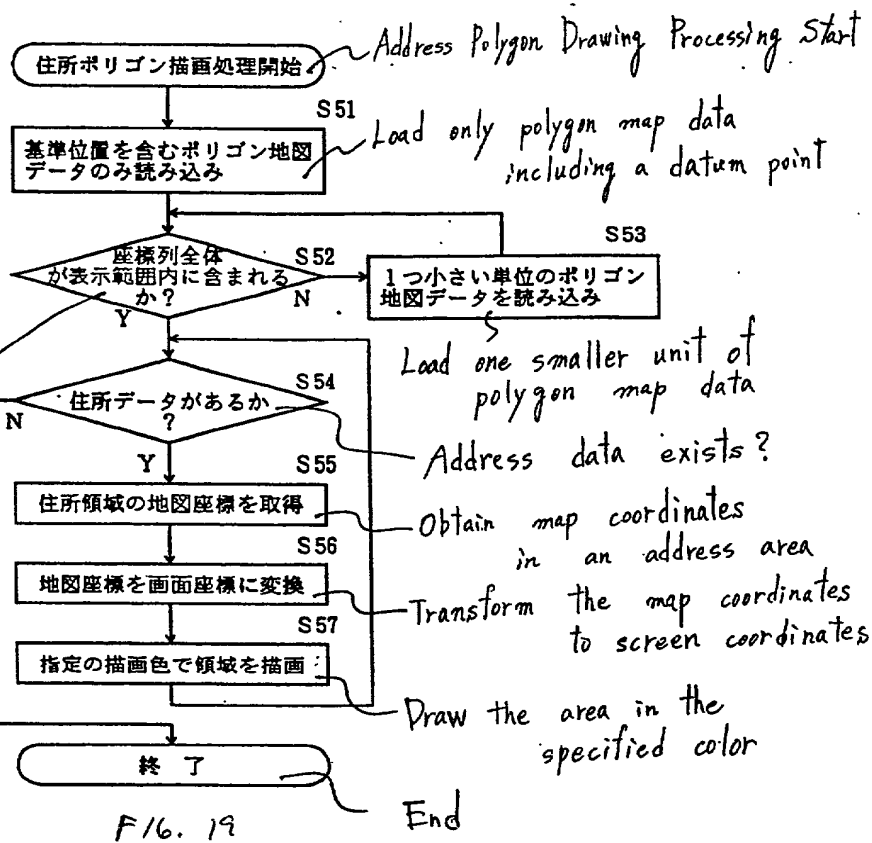 住所ポリゴン描画処理開始
Address Polygon Drawing Processing Start
S51
基準位置を含むポリゴン地図
データのみ読み込み
Load only polygon map data
including a datum point
座標列全体
が表示範囲内に含まれる
か？
S52
N
Y
S53
1つ小さい単位のポリゴン
地図データを読み込み
Load one smaller unit of
polygon map data
住所データがあるか
？
S54
N
Y
Address data exists?
S55
住所領域の地図座標を取得
Obtain map coordinates
in an address area
S56
地図座標を画面座標に変換
Transform the map coordinates
to screen coordinates
S57
指定の描画色で領域を描画
Draw the area in the
specified color
終了
End
FIG. 19